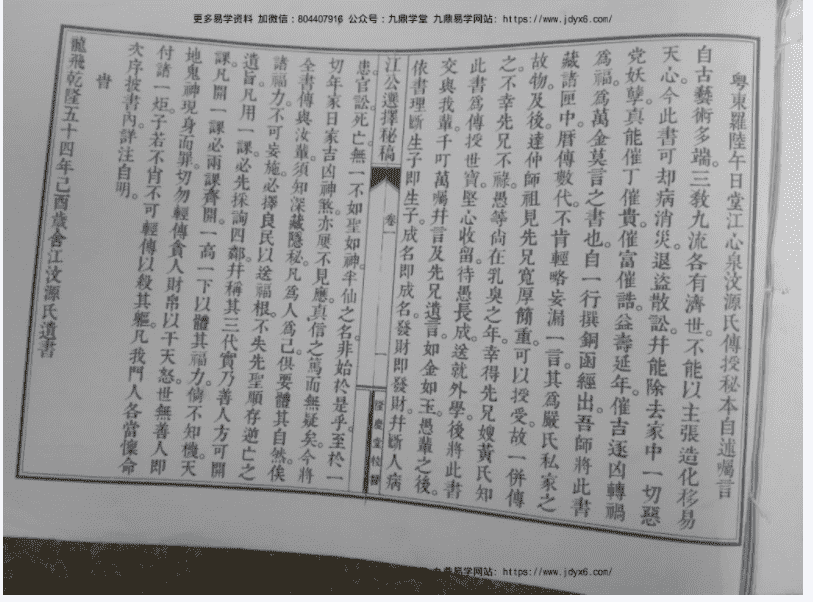 更多易学资料 加微信：804407916 公众号：九鼎学堂 九鼎易学网站：https://www.jdyx6.com/
粤東羅陸午日堂江心泉汶源氏傳授秘本自述囑言
自古藝術多端。三敎九流各有濟世。不能以主張造化移易
天心。今此書可却病消災。退盜散訟。幷能除去家中一切惡
党妖孽。真能催丁催貴。催富催誥。益壽延年。催吉逐凶。轉禍
爲福。爲萬金莫言之書也。自一行撰銅函經出。吾師將此書
藏諸匣中。曆傳數代。不肯輕略妄漏一言。其爲嚴氏私家之
故物。及後達仲師祖見先兄寬厚簡重。可以授受。故一併傳
之。不幸先兄不祿。愚等尙在乳臭之年。幸得先兄嫂黃氏知
此書爲傳授世寶。堅心收留。待愚長成。送就外學。後將此書
交與我輩。千叮萬囑。幷言及先兄遺言。如金如玉。愚輩之後。
依書理斷。生子即生子。成名即成名。發財即發財。幷斷人病
江公選擇秘稿
卷
一
患。官訟。死亡。無一不如聖如神。半仙之名。非始於是乎。至於一
切年家日家吉凶神煞。亦屢不見應。真信之篤而無疑矣。今將
全書傳與汝輩。須知深藏隱秘。凡爲人爲己。俱要體其自然。俟
諸福力。不可妄施。必擇良民以送福。根不失先聖順存逆亡之
遺旨。凡用一課。必先採詢四鄰。幷稱其三代實乃善人。方可開
課。凡開一課。必兩課齊開。一高一下。以體其福力。倘不知機。天
地鬼神現身而罪。切勿輕傳。貪人財帛。以干天怒。世無善人。即
付諸一炬。子若不肖。不可輕傳以殺其軀。凡我門人。各當懍命
次序披書內詳注自明。
龍飛乾隆五十四年己酉歲會江汶源氏遺書
九鼎易学网站：https://www.jdyx6.com/